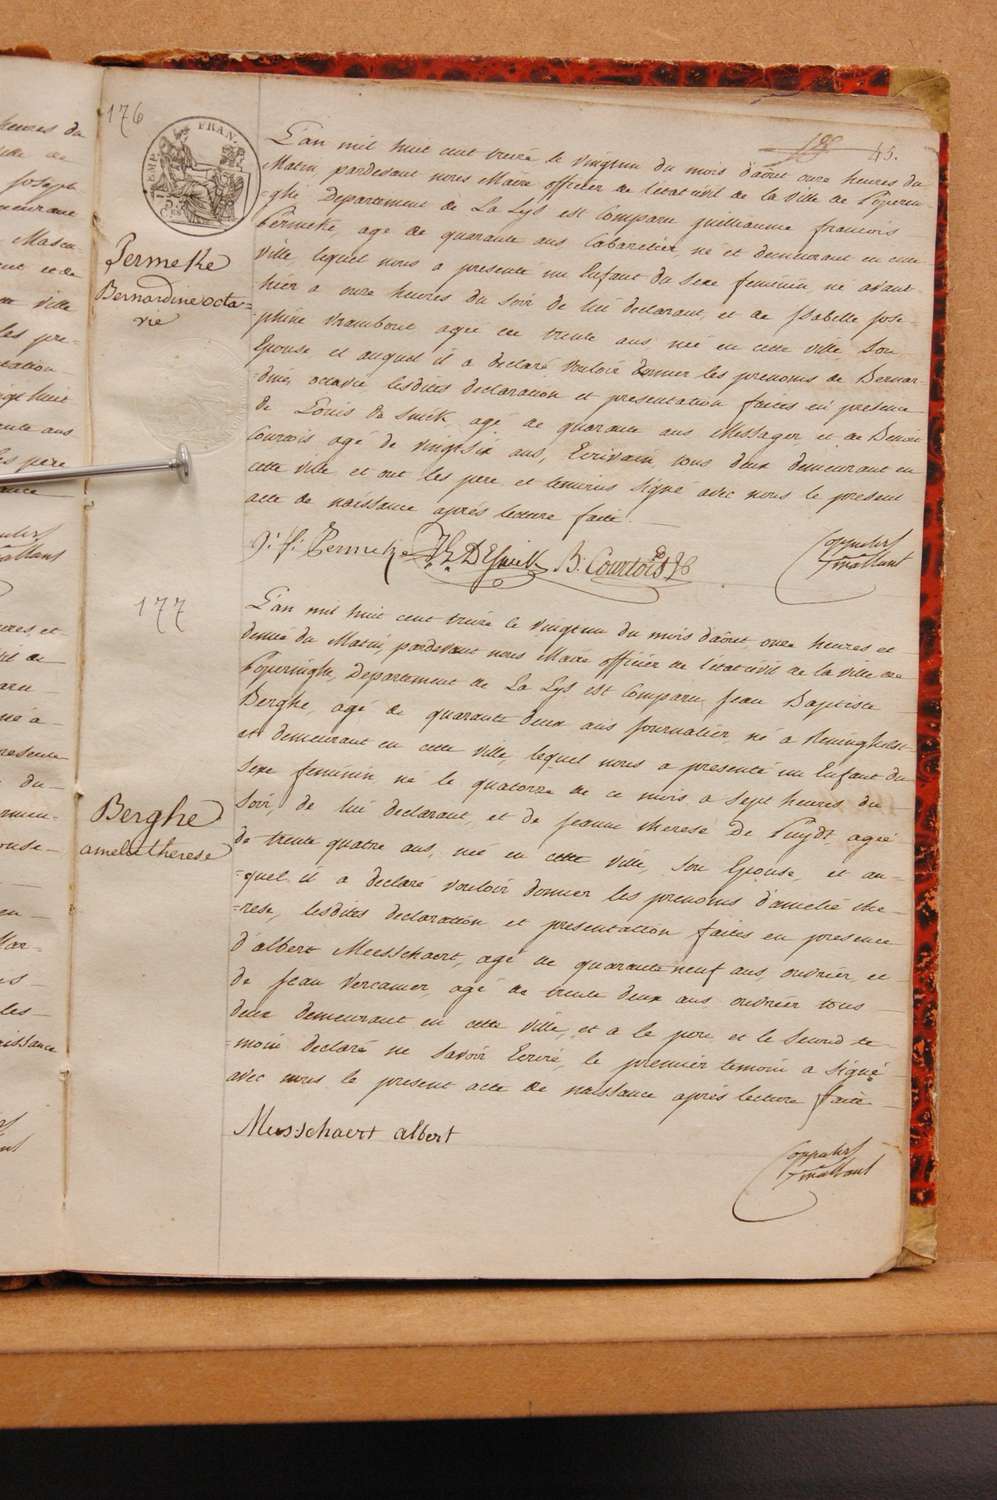 176
EMP. FRAN.
45.
L'an mil huit cent treize le vingtun du mois d'août onze heures du
Matin, pardevant nous Maire officier de l'etat civil de la ville de Poperin-
=ghe, Departement de La Lys est Comparu guilliaume francois
Permeke, agé de quarante ans Cabaretier, né et demeurant en cette
Ville, lequel nous a presenté un Enfant du Sexe feminin, né avant
hier a onze heures du Soir de lui declarant, et de Isabelle Jose-
phine Vrambout agée de trente ans née en cette ville Son
Epouse et auquel il a declaré vouloir donner les prenoms de Bernar-
dine, octavie lesdites declaration et presentation faites en presence
de Louis de Snick, agé de quarante ans Messager, et de Benoit
Courtois agé de vingt six ans, Ecrivain, tous deux demeurant en
cette ville et ont les pere et temoins signé avec nous le present
acte de naissance après lecture faite.
Permeke
Bernardine octa=
vie
g: f: Permeke L. DESnick B: Courtois
177
L'an mil huit cent treize le vingtun du mois d'août, onze heures et
demie du Matin, pardevant nous Maire officier de l'etat civil de la ville de
Poperinghe, Departement de La Lys est Comparu, Jean Baptiste
Berghe, agé de quarante deux ans Journalier, né a Reninghelst
et demeurant en cette ville, lequel nous a presenté un Enfant du
Sexe feminin, né le quatorze de ce mois a Sept heures du
Soir, de lui declarant, et de Jeanne therese De Puydt, agée
de trente quatre ans, née en cette ville, Son Epouse, et au-
=quel il a declaré vouloir donner les prenoms d'amelie the-
=rese, lesdites declaration et presentation faites en presence
d'albert Meesschaert, agé de quarante neuf ans, ouvrier, et
de Jean Vercamer, agé de trente deux ans ouvrier tous
deux demeurant en cette ville, et a le pere et le second te-
=moin declaré ne savoir Ecrire, le premier temoin a signé
avec nous le present acte de naissance après lecture faite
Berghe
amelie therese
Messchaert albert